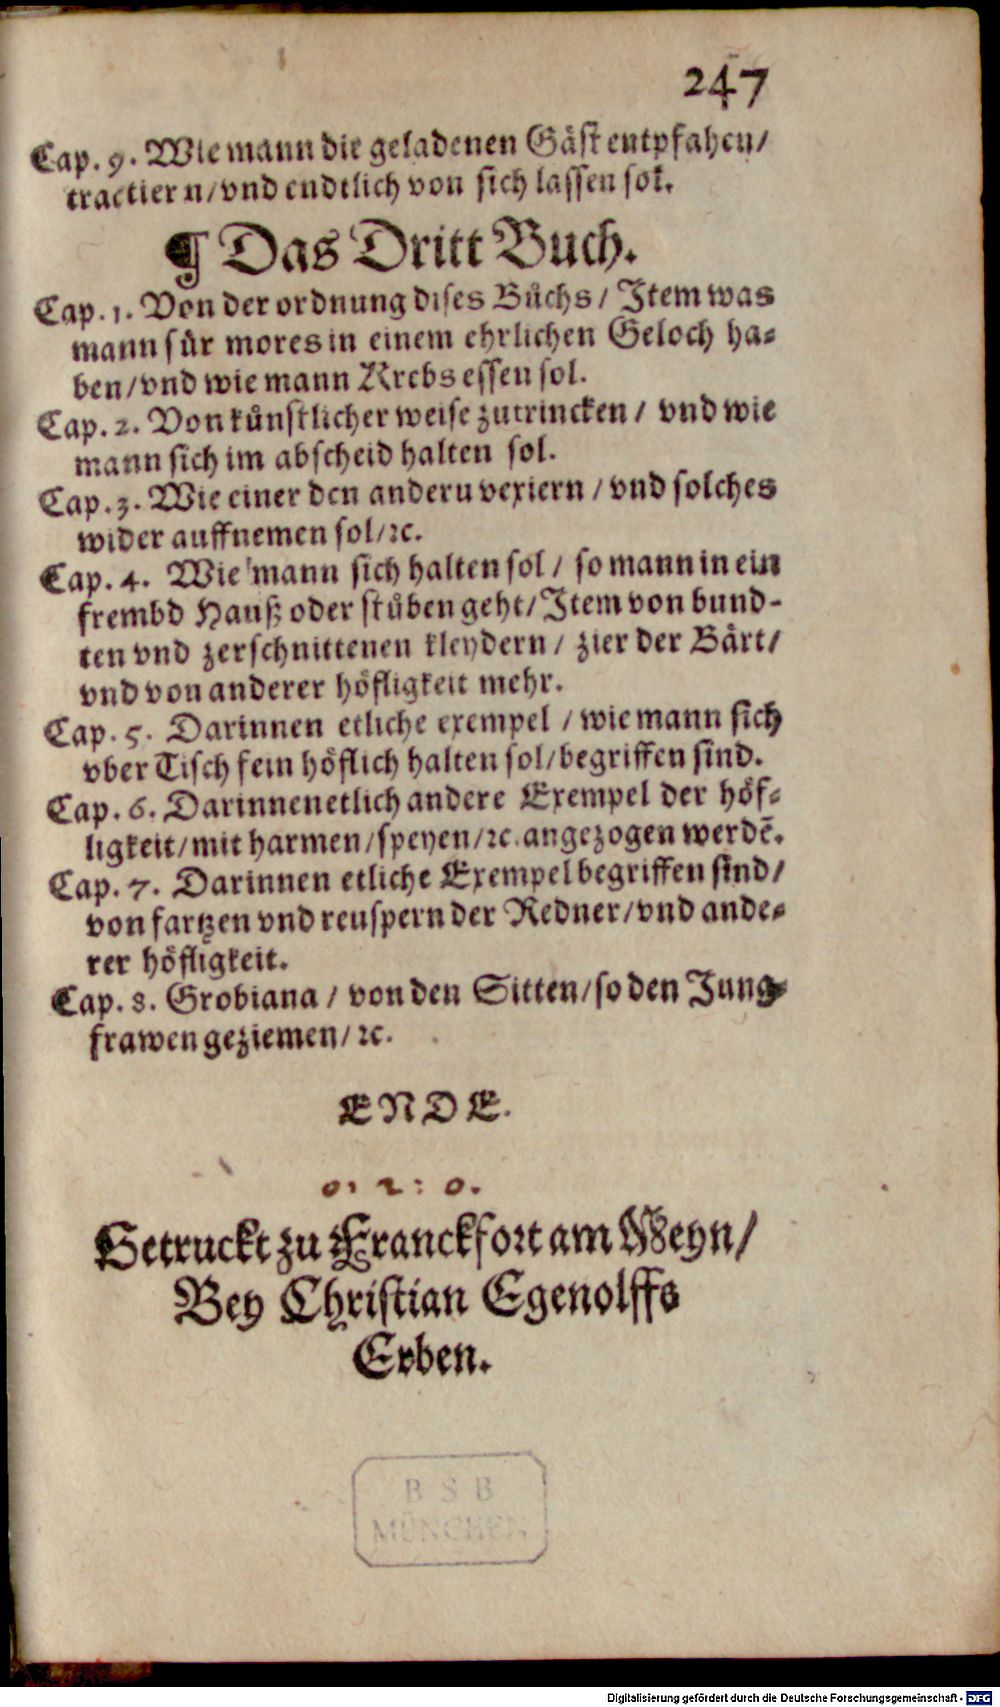 247
Cap. 9. Wie mann die geladenen Gäst entpfahen/
tractiern/vnd endtlich von sich lassen sol.
¶ Das Dritt Buch.
Cap. 1. Von der ordnung dises Bůchs / Item was
mann für mores in einem ehrlichen Geloch ha-
ben/vnd wie mann Krebs essen sol.
Cap. 2. Von künstlicher weise zutrincken / vnd wie
mann sich im abscheid halten sol.
Cap. 3. Wie einer den andern vexiern / vnd solches
wider auffnemen sol/ꝛc.
Cap. 4. Wie mann sich halten sol / so mann in ein
frembd Hauß oder stüben geht/Item von bund-
ten vnd zerschnittenen kleydern / zier der Bärt/
vnd von anderer höfligkeit mehr.
Cap. 5. Darinnen etliche exempel / wie mann sich
vber Tisch fein höflich halten sol/begriffen sind.
Cap. 6. Darinnen etlich andere Exempel der höf-
ligkeit/mit harmen/speyen/ꝛc. angezogen werdẽ.
Cap. 7. Darinnen etliche Exempel begriffen sind/
von fartzen vnd reuspern der Redner/vnd ande-
rer höfligkeit.
Cap. 8. Grobiana / von den Sitten/so den Jung-
frawen geziemen/ꝛc.
ENDE.
0: 2: 0.
Getruckt zu Franckfort am Meyn/
Bey Christian Egenolffs
Erben.
BSB
MÜNCHEN
Digitalisierung gefördert durch die Deutsche Forschungsgemeinschaft - DFG